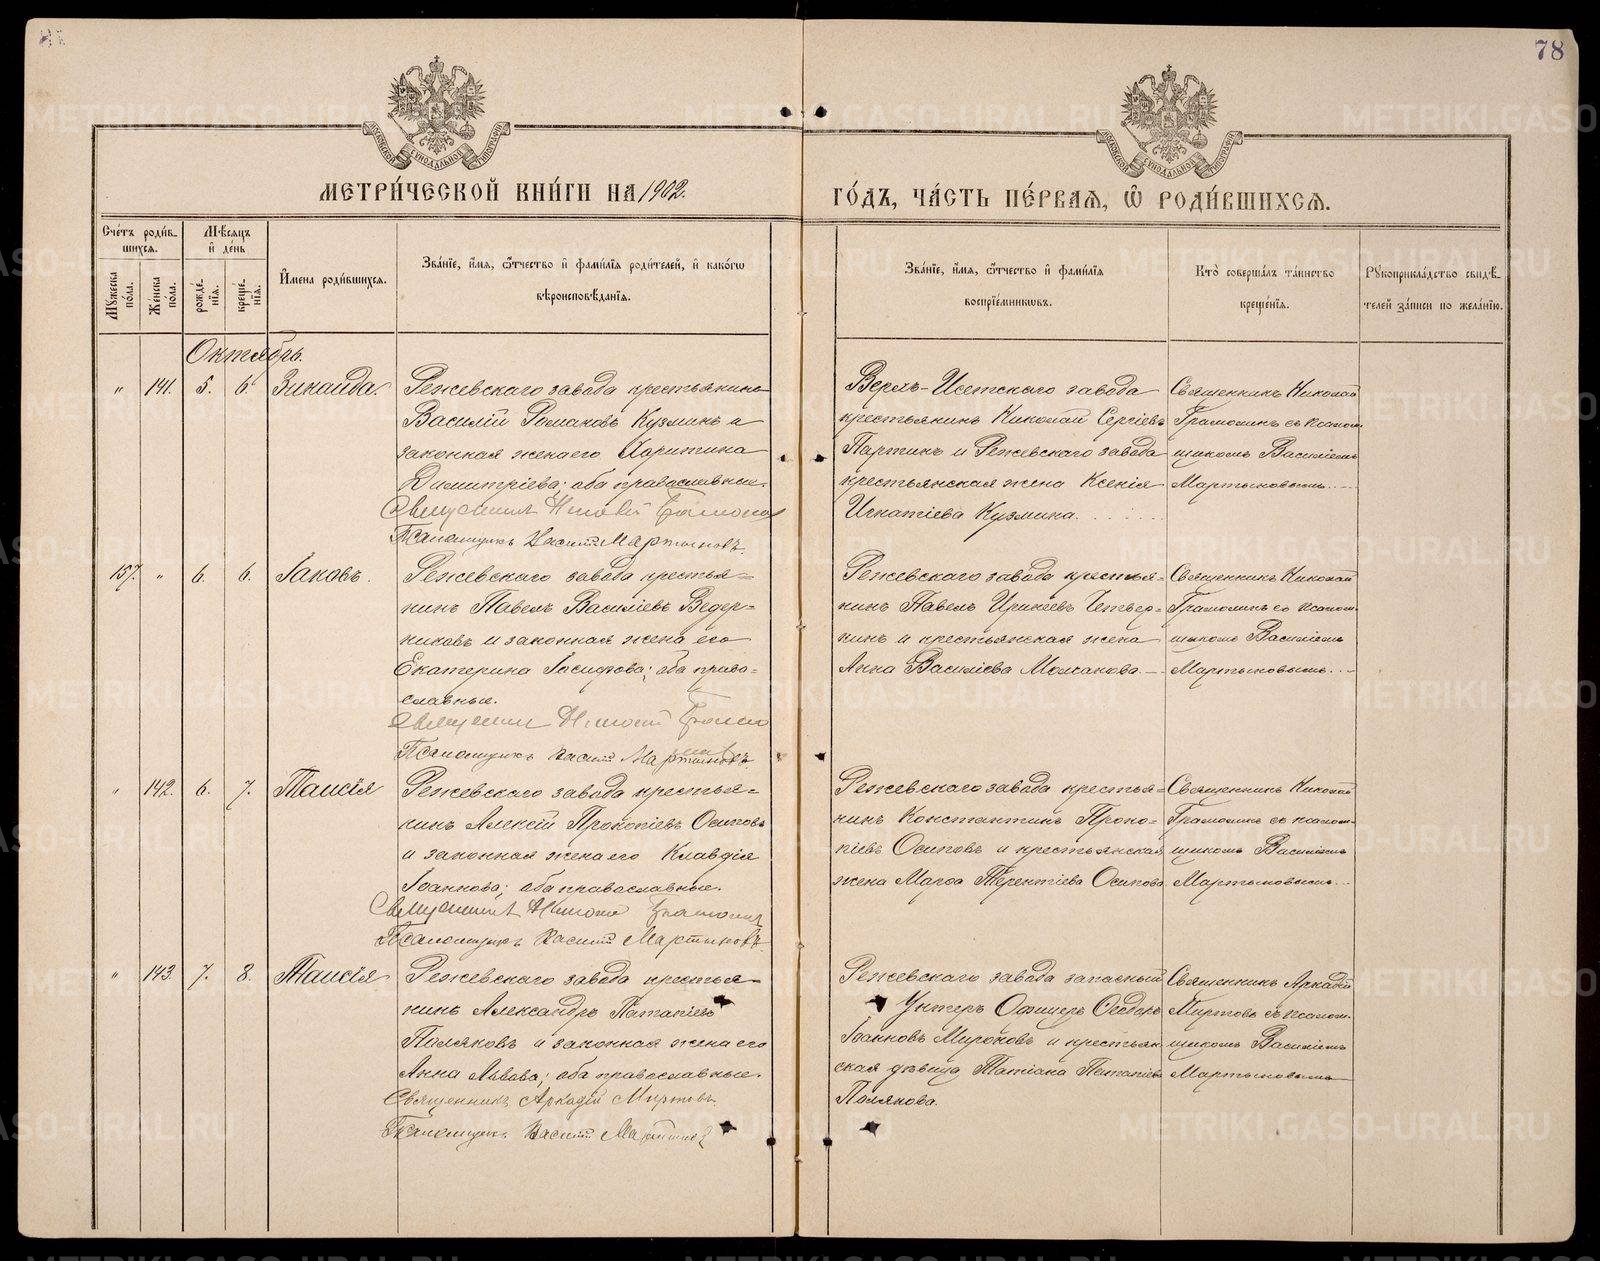 78
МОСКОВСКОЙ СѴНОДАЛЬНОЙ ТИПОГРАФІИ
МОСКОВСКОЙ СѴНОДАЛЬНОЙ ТИПОГРАФІИ
МЕТРИ́ЧЕСКОЙ КНИ́ГИ НА 1902.
ГО́ДЪ, ЧА́СТЬ ПЕ́РВАѦ, Ѽ РОДИ́ВШИХСѦ.
Сче́тъ роди́в-
шихсѧ.
Мѣ́сѧцъ
и҆ де́нь
Мꙋ́жеска
по́ла.
Же́нска
по́ла.
рожде́-
нїѧ.
креще́-
нїѧ.
И҆мена роди́вшихсѧ.
Зва́нїе, и҆́мѧ, ѻ҆́тчество и҆ фами́лїѧ роди́телей, и҆ како́гѡ
вѣроисповѣ́данїѧ.
Зва́нїе, и҆́мѧ, ѻ҆́тчество и҆ фами́лїѧ
воспрїе́мникѡвъ.
Кто̀ соверша́лъ та́инство
креще́нїѧ.
Рꙋкоприкла́дство свидѣ́-
телей за́писи по жела́нїю.
Октябрь.
" 141. 5. 6. Зинаида.
Режевскаго завода крестьянинъ
Василій Романовъ Кузминъ и
законная жена его Харитина
Димитріева; оба православные.
Священникъ Николай Грамолин
Псаломщикъ Василій Мартыновъ.
Верхъ-Исетскаго завода
крестьянинъ Николай Сергіевъ
Партинъ и Режевскаго завода
крестьянская жена Ксенія
Игнатіева Кузмина.
Священникъ Николай
Грамолинъ съ псалом-
щикомъ Василіемъ
Мартыновымъ.
157. " 6. 6. Іаковъ.
Режевскаго завода крестья-
нинъ Павелъ Василіевъ Ведер-
никовъ и законная жена его
Екатерина Іосифова; оба право-
славные.
Священник Николай Грамолин
Псаломщикъ Василій Мартыновъ.
Режевскаго завода крестья-
нинъ Павелъ Ириніевъ Четвер-
кинъ и крестьянская жена
Анна Василіева Молчанова.
Священникъ Николай
Грамолинъ съ псалом-
щикомъ Василіемъ
Мартыновымъ.
" 142. 6. 7. Таисія
Режевскаго завода крестья-
нинъ Алексій Прокопіевъ Осиповъ
и законная жена его Клавдія
Іоаннова; оба православные.
Священникъ Николай Грамолин
Псаломщикъ Василій Мартыновъ
Режевскаго завода крестья-
нинъ Константинъ Проко-
піевъ Осиповъ и крестьянская
жена Марѳа Терентіева Осипова
Священникъ Николай
Грамолинъ съ псалом-
щикомъ Василіемъ
Мартыновымъ.
" 143. 7. 8. Таисія
Режевскаго завода крестья-
нинъ Александръ Патапіевъ
Поляковъ и законная жена его
Анна Львова; оба православные.
Священникъ Аркадій Миртовъ.
Псаломщикъ Василій Мартынов
Режевскаго завода запасный
Унтеръ Офицеръ Ѳеодоръ
Іоанновъ Мироновъ и крестьян
ская дѣвица Татіана Патапіева
Полякова.
Священникъ Аркадій
Миртовъ съ псалом-
щикомъ Василіемъ
Мартыновымъ
METRIKI.GASO-URAL.RU